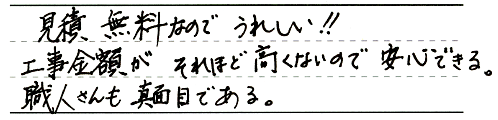 見積無料なので うれしい!!
工事金額が それほど高くないので 安心できる。
職人さんも真面目である。